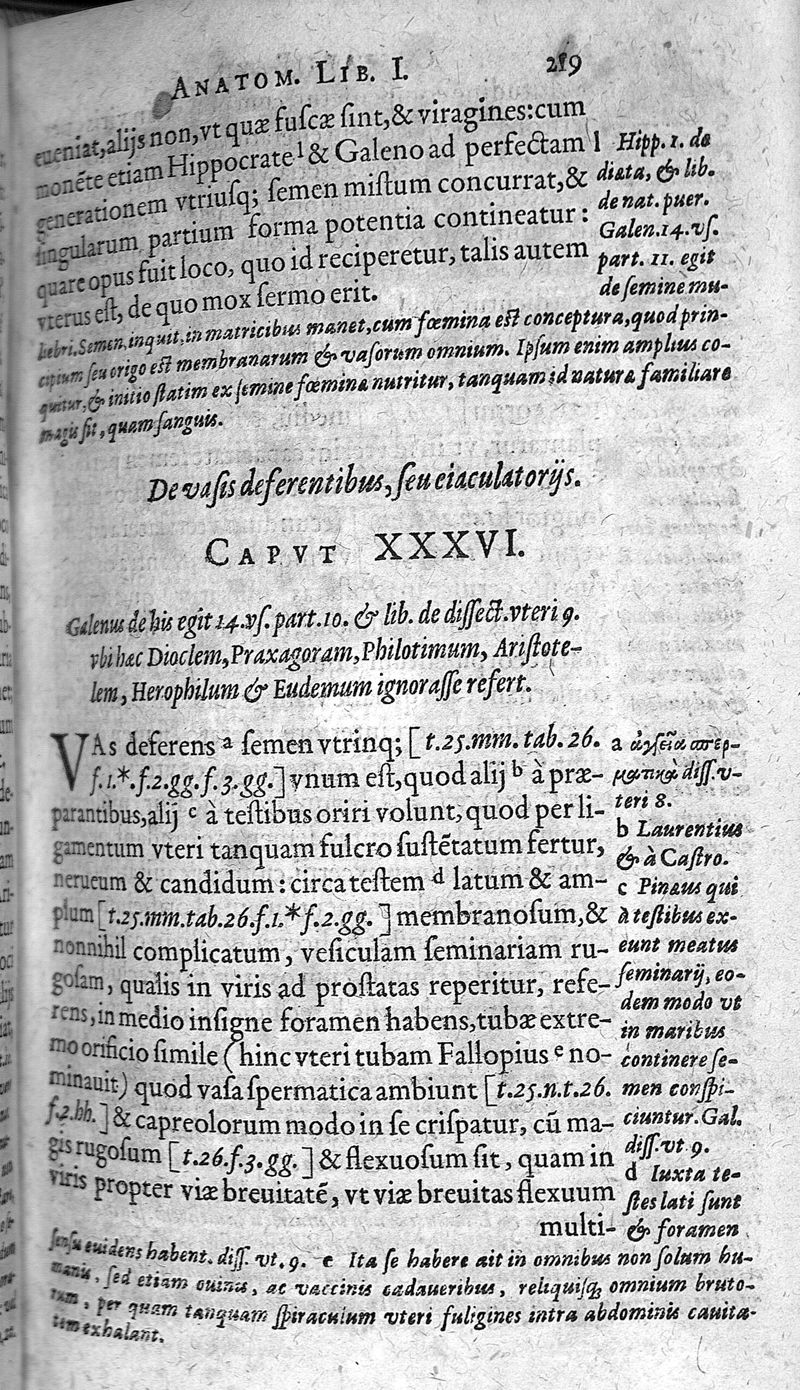 ANATOM. LIB. I. 219
eueniat, alijs non, vt quæ fuſcæ ſint, & viragines: cum
monẽte etiam Hippocrate l & Galeno ad perfectam
generationem vtriuſq; ſemen miſtum concurrat, &
ſingularum partium forma potentia contineatur:
quare opus fuit loco, quo id reciperetur, talis autem
vterus eſt, de quo mox ſermo erit.
l Hipp. 1. de
diæta, & lib.
de nat. puer.
Galen. 14. vſ.
part. 11. egit
de ſemine mu-
liebri. Semen, inquit, in matricibus manet, cum fœmina eſt conceptura, quod prin-
cipium ſeu origo eſt membranarum & vaſorum omnium. Ipſum enim amplius co-
quitur, & initio ſtatim ex ſemine fœminæ nutritur, tanquam id naturæ familiare
magis ſit, quam ſanguis.
De vaſis deferentibus, ſeu eiaculatorijs.
CAPVT XXXVI.
Galenus de his egit 14. vſ. part. 10. & lib. de diſſect. vteri 9.
vbi hæc Dioclem, Praxagoram, Philotimum, Ariſtote-
lem, Herophilum & Eudemum ignoraſſe refert.
VAs deferens a ſemen vtrinq; [t.25.mm. tab. 26.
f.1.*.f.2.gg.f.3.gg.] vnum eſt, quod alij b à præ-
parantibus, alij c à teſtibus oriri volunt, quod per li-
gamentum vteri tanquam fulcro ſuſtẽtatum fertur,
nerueum & candidum: circa teſtem d latum & am-
plum [t.25.mm.tab.26.f.1.* f.2.gg.] membranoſum, &
nonnihil complicatum, veſiculam ſeminariam ru-
goſam, qualis in viris ad proſtatas reperitur, refe-
rens, in medio inſigne foramen habens, tubæ extre-
mo orificio ſimile (hinc vteri tubam Fallopius e no-
minauit) quod vaſa ſpermatica ambiunt [t.25.n.t.26.
f.2.hh.] & capreolorum modo in ſe criſpatur, cũ ma-
gis rugoſum [t.26.f.3.gg.] & flexuoſum ſit, quam in
viris propter viæ breuitatẽ, vt viæ breuitas flexuum
multi-
a ἀγγεῖα σπερ-
ματικὰ diſſ. v-
teri 8.
b Laurentius
& à Caſtro.
c Pinæus qui
à teſtibus ex-
eunt meatus
ſeminarij, eo-
dem modo vt
in maribus
continere ſe-
men conſpi-
ciuntur. Gal.
diſſ. vt 9.
d Iuxta te-
ſtes lati ſunt
& foramen
ſenſu euidens habent. diſſ. vt. 9. e Ita ſe habere ait in omnibus non ſolum hu-
manis, ſed etiam ouinis, ac vaccinis cadaueribus, reliquiſq; omnium bruto-
rum, per quam tanquam ſpiraculum vteri fuligines intra abdominis cauita-
tem exhalant.